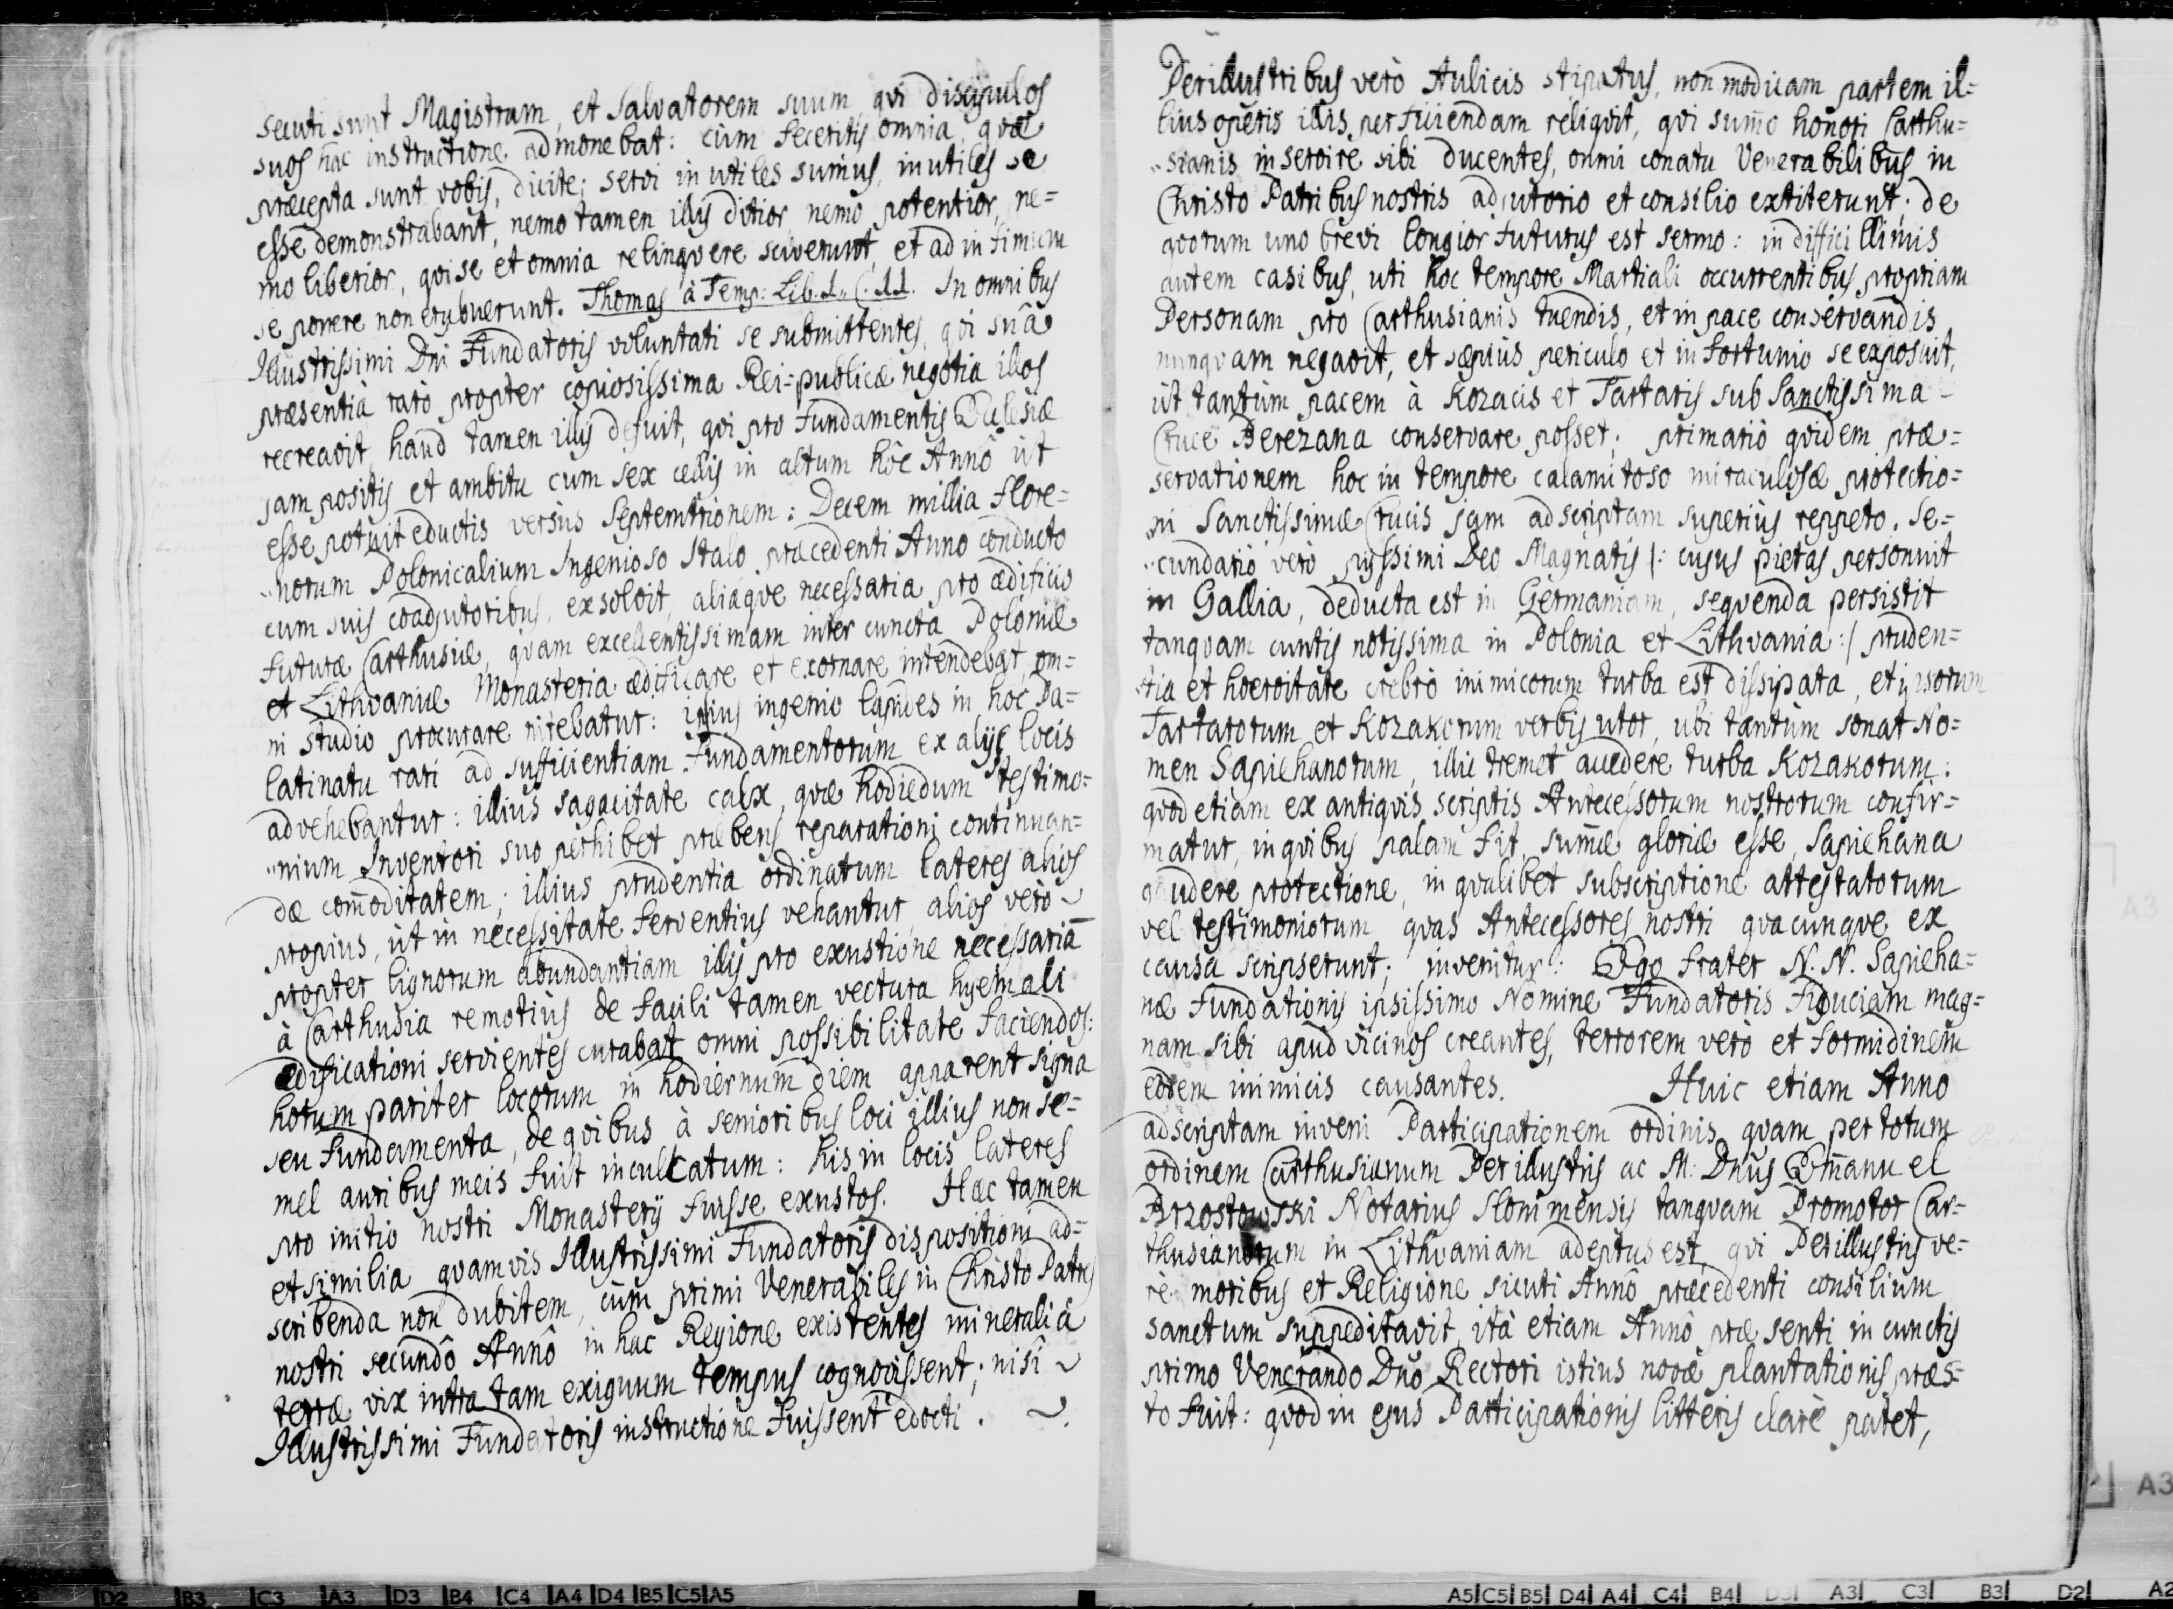 secuti sunt Magistrum, et Salvatorem suum, qvi discipulos
suos hac instructione admonebat: cùm feceritis omnia qvæ
præcepta sunt vobis, dicite; servi inutiles sumus, inutiles se
esse demonstrabant, nemo tamen illis ditior nemo potentior, ne=
mo liberior, qvi se et omnia relinqvere sciverunt, et ad infimum
se ponere non erubuerunt. Thomas à Kemp: Lib. 2. C. 11. In omnibus
Illustrissimi Dni Fundatoris voluntati se submittentes, qvi suâ
præsentiâ rarò propter copiosissima Rei=publicæ negotia illos
recreavit, haud tamen illis defuit, qvi pro fundamentis Ecclesiæ
jam positis et ambitu cum sex cellis in altum hôc Annô ùt
esse potuit eductis versùs Septemtrionem: Decem millia flore=
"norum Polonicalium Ingenioso Italo præcedenti Anno conducto
cum suis coadjutoribus, exsolvit, aliaqve necessaria pro ædificio
futuræ Carthusiæ, qvam excellentissimam inter cuncta Poloniæ
et Lithvaniæ Monasteria ædificare et exornare intendebat om=
ni studio procurare nitebatur: illius ingenio lapides in hoc Pa=
latinatu rari ad sufficientiam Fundamentorum ex alijs locis
advehebantur: illius sagacitate calx, qvæ hodiedum testimo=
"nium Inventori suo perhibet præbens reparationi continuan=
dæ comoditatem; illius prudentia ordinatum lateres alios
propius, ùt in necessitate ferventius vehantur, alios verò
propter lignorum abundantiam illis pro exustione necessariâ
à Carthusia remotiùs de facili tamen vectura hyemali
ædificationi servientes curabat omni possibilitate faciendos:
horum pariter locorum in hodiernum diem apparent signa
seu fundamenta, de qvibus à senioribus loci illius non se=
mel auribus meis fuit inculcatum: his in locis lateres
pro initio nostri Monasterij fuisse exustos. Hæc tamen
et similia qvamvis Illustrissimi Fundatoris dispositioni ad=
scribenda non dubitem, cùm primi Venerabiles in Christo Patres
nostri secundô Annô in hac Regione existentes mineralia
terræ vix intra tam exiguum tempus cognovissent; nisi
Illustrissimi Fundatoris instructione fuissent edocti.
Perillustribus verò Aulicis stipatus, non modicam partem il=
lius operis illis perficiendam reliqvit, qvi sumo honori Carthu=
"sianis inservire sibi ducentes, omni conatu Venerabilibus in
Christo Patribus nostris adjutorio et consilio extiterunt; de
qvorum uno brevi longior futurus est sermo: in difficillimis
autem casibus, uti hoc tempore Martiali occurrentibus propriam
Personam pro Carthusianis tuendis, et in pace conservandis
nunqvam negavit, et sæpiùs periculo et infortunio se exposuit,
ùt tantùm pacem à Kozacis et Tartaris sub Sanctissima
Cruce Berezana conservare posset; primariò qvidem præ=
servationem hoc in tempore calamitoso miraculosæ protectio=
"ni Sanctissimæ Crucis jam adscriptam superiùs reppeto. Se=
"cundariò verò pijssimi Deo Magnatis /: cujus pietas personuit
in Gallia, deducta est in Germaniam, seqvenda persistit
tanqvam cunctis notissima in Polonia et Lithvania :/ pruden=
"tia et hoeroitate crebrò inimicorum turba est dissipata, et ipsorum
Tartarorum et Kozakorum verbis utor, ubi tantùm sonat No=
men Sapiehanorum, illic tremet accedere turba Kozakorum:
qvod etiam ex antiqvis scriptis Antecessorum nostrorum confir=
matur, in qvibus palam fit, sumæ gloriæ esse, Sapiehana
gaudere protectione, in qvalibet subscriptione attestatorum
vel testimoniorum qvas Antecessores nostri qvacunqve ex
causa scripserunt; invenitur: Ego Frater N. N. Sapieha=
næ Fundationis ipsissimo Nomine Fundatoris fiduciam mag=
nam sibi apud vicinos creantes, terrorem verò et formidinem
eorem inimicis causantes. Huic etiam Anno
adscriptam inveni Participationem ordinis qvam per totum
ordinem Carthusianum Perillustris ac M: Dnus Emanuel
Brzostowski Notarius Slonimensis tanqvam Promotor Car=
thusianorum in Lithvaniam adeptus est, qvi Perillustris ve=
rè moribus et Religione sicuti Annô præcedenti consilium
sanctum suppeditavit, ità etiam Annô præsenti in cunctis
primo Venerando Dno Rectori istius novæ plantationis præs=
to fuit: qvod in ejus Participationis litteris clarè patet,